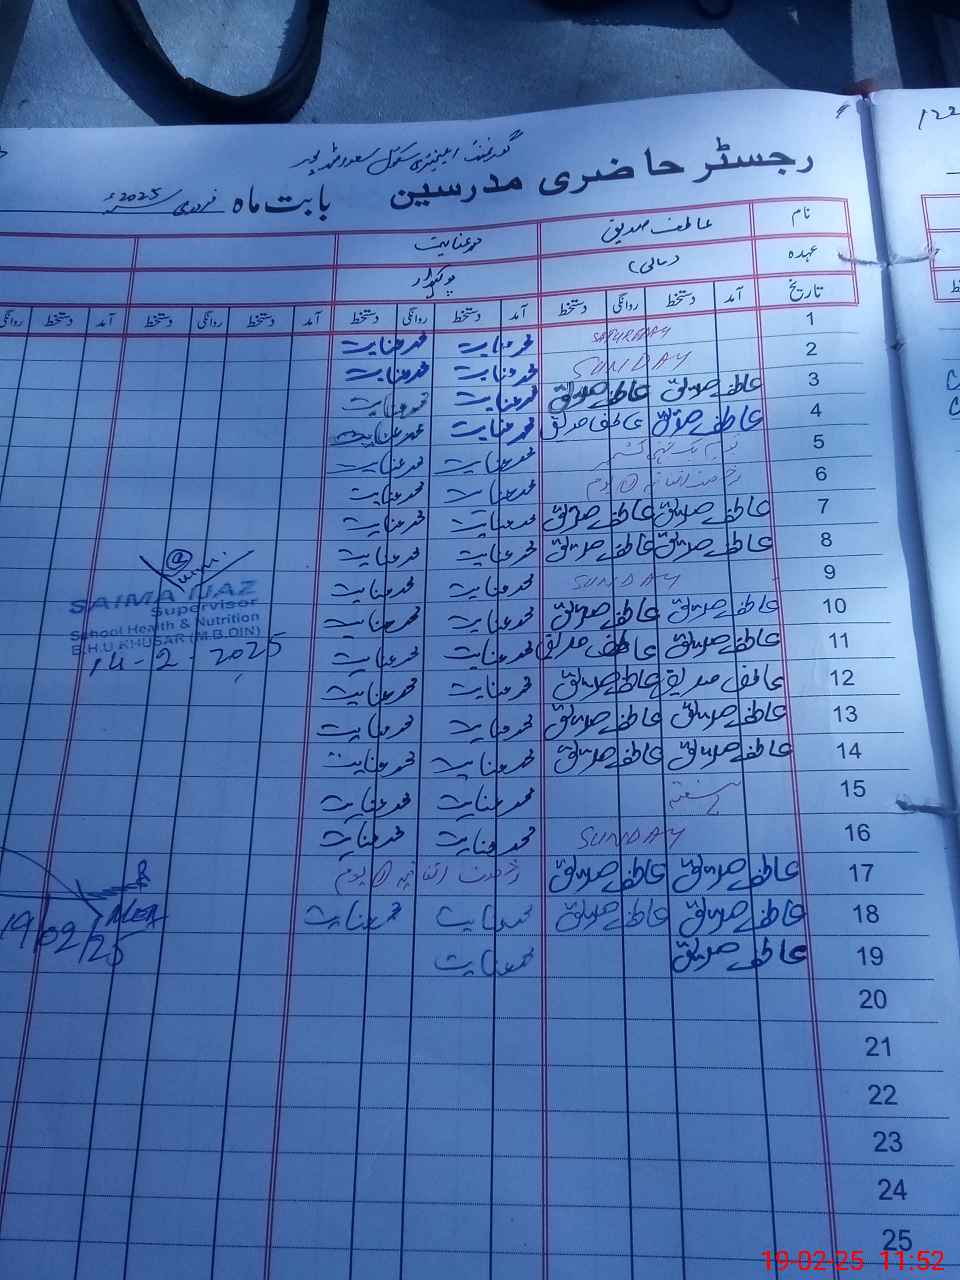 گورنمنٹ ایلیمنٹری سکول
رجسٹر حاضری مدرسین بابت ماہ فروری 2025ء
نام عاطف صدیق محمد عنایت
عہدہ مالی چوکیدار
تاریخ آمد دستخط روانگی دستخط آمد دستخط روانگی دستخط آمد دستخط روانگی دستخط آمد دستخط روانگی
1 SATURDAY محمد عنایت محمد عنایت
2 SUNDAY محمد عنایت محمد عنایت
3 عاطف صدیق عاطف صدیق محمد عنایت محمد عنایت
4 عاطف صدیق عاطف صدیق محمد عنایت محمد عنایت
5 محمد عنایت محمد عنایت
6 رخصت اتفاقیہ ① یوم محمد عنایت محمد عنایت
7 عاطف صدیق عاطف صدیق محمد عنایت محمد عنایت
8 عاطف صدیق عاطف صدیق محمد عنایت محمد عنایت
9 SUNDAY محمد عنایت محمد عنایت
10 عاطف صدیق عاطف صدیق محمد عنایت محمد عنایت
11 عاطف صدیق عاطف صدیق محمد عنایت محمد عنایت
12 عاطف صدیق عاطف صدیق محمد عنایت محمد عنایت
13 عاطف صدیق عاطف صدیق محمد عنایت محمد عنایت
14 عاطف صدیق عاطف صدیق محمد عنایت محمد عنایت
15 محمد عنایت محمد عنایت
16 SUNDAY محمد عنایت محمد عنایت
17 عاطف صدیق عاطف صدیق رخصت اتفاقیہ ① یوم
18 عاطف صدیق عاطف صدیق محمد عنایت محمد عنایت
19 عاطف صدیق محمد عنایت
20
21
22
23
24
25
SAIMA IJAZ
Supervisor
School Health & Nutrition
B.H.U KHUSAR (M.B.DIN)
14-2-2025
19/02/25
19-02-25 11:52